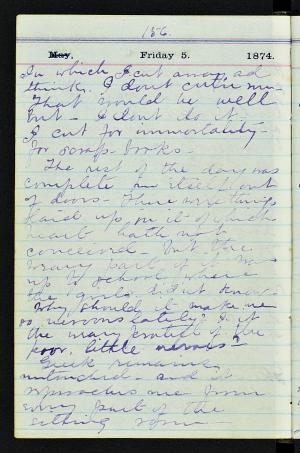 156.
May, Friday 5. 1874.
In which I cut an ad
think. I don't cut in
That would be well
but - I don't do it -
I cut for immortality -
for scrap-books -
The rest of the day was
complete in itself out
of doors - There were things
up on it of which
heart hath not
conceived - but the
part of it was
up to school where
the girls didn't know -
Why should it make me
so nervous lately? Is it
the of the
poor, little nerves?
Greek remains
untouched - and it
reproaches me from
every part of the
sitting room -